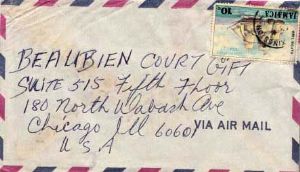 10c JAMAICA
BEAUBIEN COURT GIFT
SUITE 515 Fifth Floor
180 North Wabash Ave
Chicago Ill 60601
VIA AIR MAIL
U.S.A